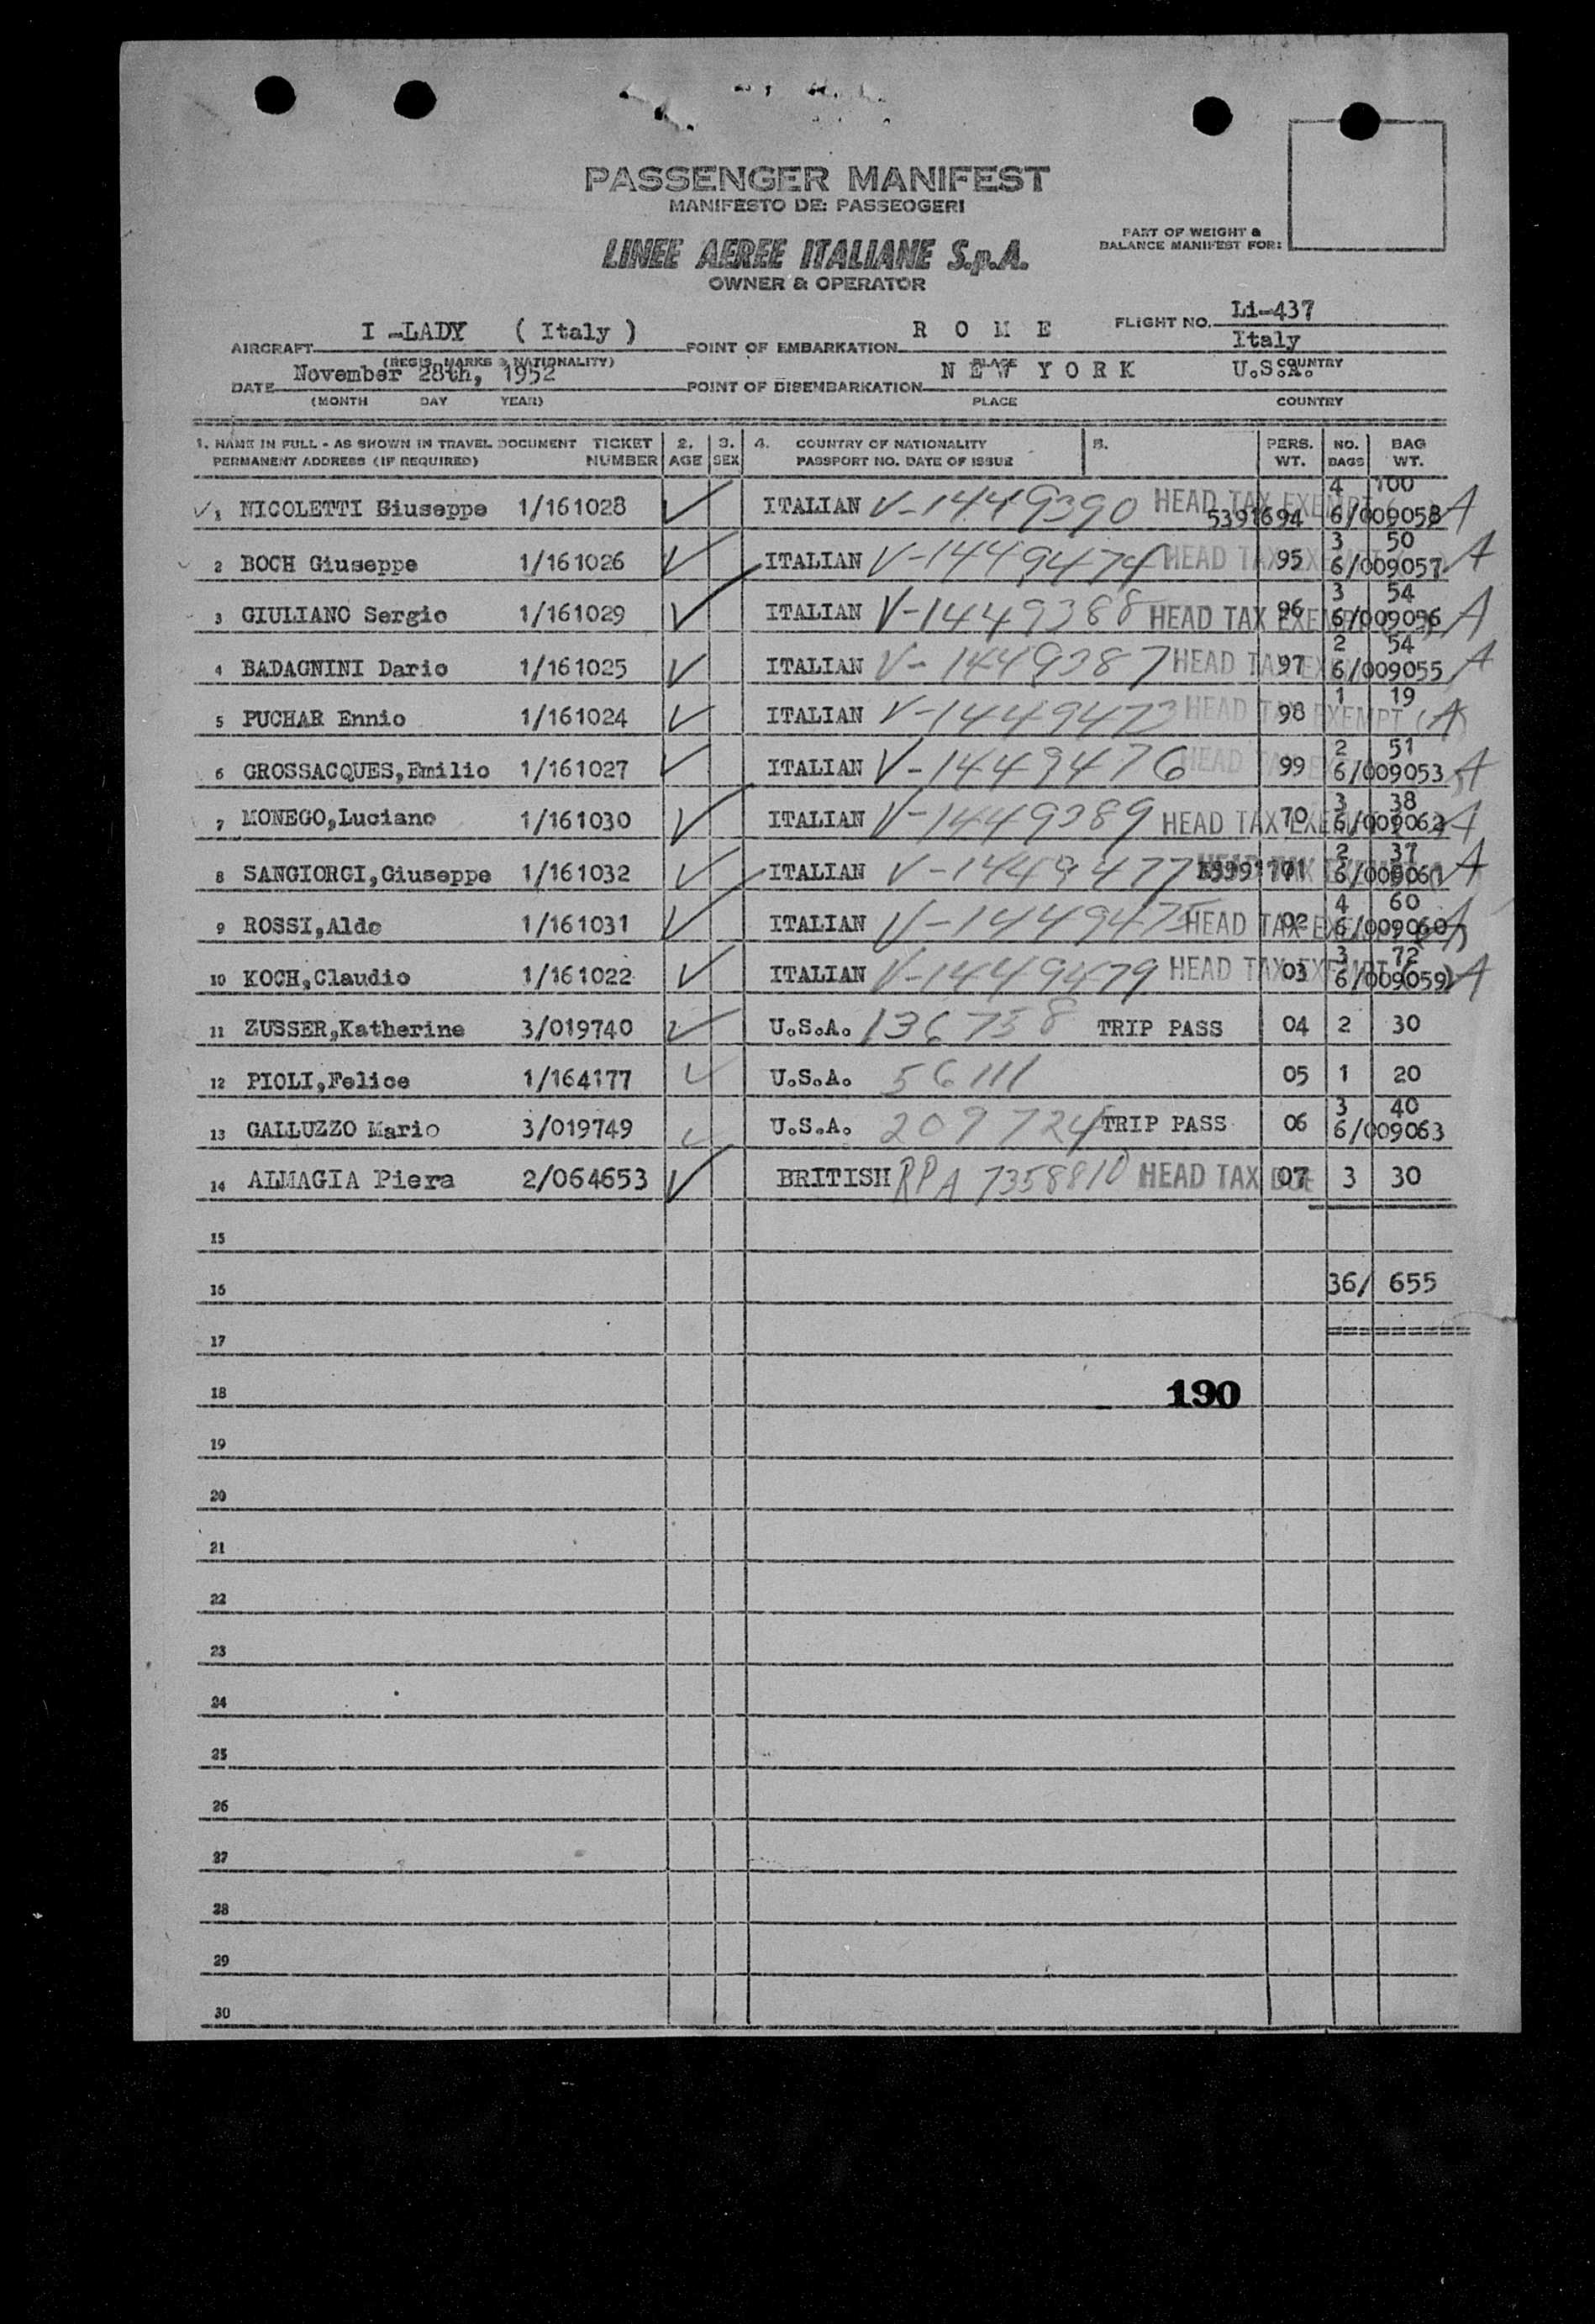 PASSENGER MANIFEST
MANIFESTO DE: PASSEOGERI
PART OF WEIGHT &
BALANCE MANIFEST FOR:
LINEE AEREE ITALIANE S.p.A.
OWNER & OPERATOR
AIRCRAFT I-LADY ( Italy ) POINT OF EMBARKATION R O M E FLIGHT NO. Li-437
Italy
(REGIS. MARKS & NATIONALITY) PLACE COUNTRY
DATE November 28th, 1952 POINT OF DISEMBARKATION N E W Y O R K U.S.A.
(MONTH DAY YEAR) PLACE COUNTRY
1. NAME IN FULL - AS SHOWN IN TRAVEL DOCUMENT TICKET 2. 3. 4. COUNTRY OF NATIONALITY 5. PERS. NO. BAG
PERMANENT ADDRESS (IF REQUIRED) NUMBER AGE SEX PASSPORT NO. DATE OF ISSUE WT. BAGS WT.
4 100
1 NICOLETTI Giuseppe 1/161028 ITALIAN V-1449390 HEAD TAX EXEMPT 5391694 6/009058 A
3 50
2 BOCH Giuseppe 1/161026 ITALIAN V-1449474 HEAD TAX EXEMPT 95 6/009057 A
3 54
3 GIULIANO Sergio 1/161029 ITALIAN V-1449388 HEAD TAX EXEMPT 96 6/009056 A
2 54
4 BADAGNINI Dario 1/161025 ITALIAN V-1449387 HEAD TAX EXEMPT 97 6/009055 A
1 19
5 PUCHAR Ennio 1/161024 ITALIAN V-1449473 HEAD TAX EXEMPT (A) 98
2 51
6 GROSSACQUES,Emilio 1/161027 ITALIAN V-1449476 HEAD TAX EXEMPT 99 6/009053 A
3 38
7 MONEGO,Luciano 1/161030 ITALIAN V-1449389 HEAD TAX EXEMPT 70 6/009062 A
2 37
8 SANGIORGI,Giuseppe 1/161032 ITALIAN V-1449477 HEAD TAX EXEMPT 6/009061 A
4 60
9 ROSSI,Aldo 1/161031 ITALIAN V-1449475 HEAD TAX EXEMPT 02 6/009060 A
3 72
10 KOCH,Claudio 1/161022 ITALIAN V-1449479 HEAD TAX EXEMPT 03 6/009059 A
11 ZUSSER,Katherine 3/019740 U.S.A. 136758 TRIP PASS 04 2 30
12 PIOLI,Felice 1/164177 U.S.A. 56111 05 1 20
3 40
13 GALLUZZO Mario 3/019749 U.S.A. 209724 TRIP PASS 06 6/009063
14 ALMAGIA Piera 2/064653 BRITISH RPA 7358810 HEAD TAX DUE 07 3 30
15
16 36/ 655
17
18 190
19
20
21
22
23
24
25
26
27
28
29
30